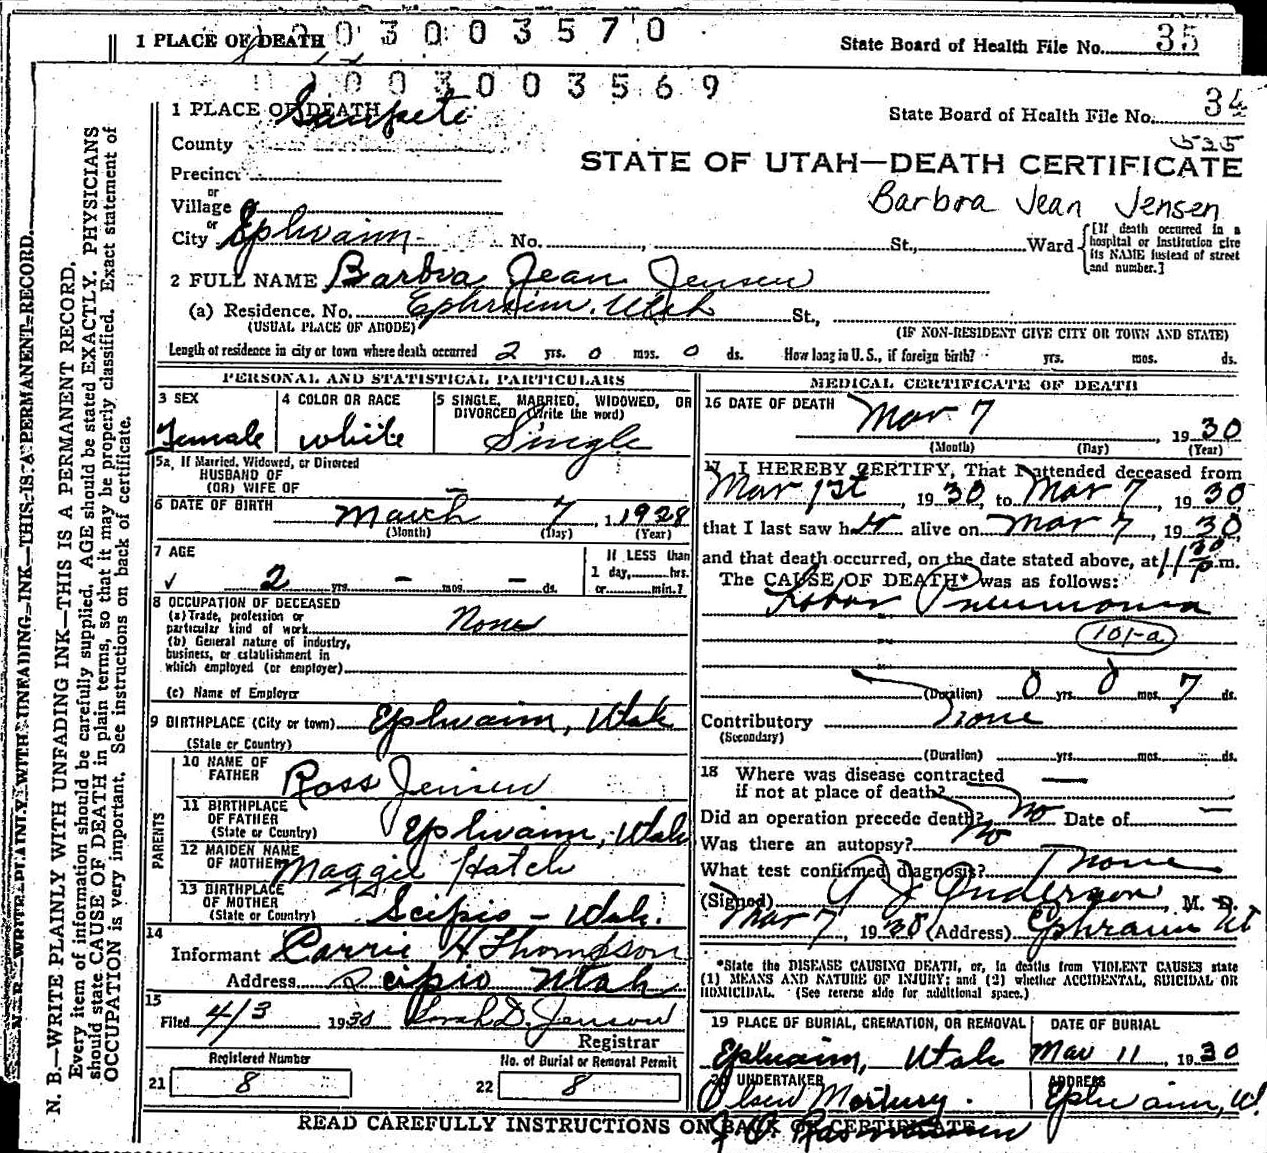 1 PLACE OF DEATH 0 3 0 0 3 5 7 0
State Board of Health File No. 35
0 0 3 0 0 3 5 6 9
1 PLACE OF DEATH
Sanpete
State Board of Health File No. 34
525
County
STATE OF UTAH—DEATH CERTIFICATE
Precinct
Barbra Jean Jensen
or
Village
or
City Ephraim No. , St., Ward [If death occurred in a hospital or institution give its NAME instead of street and number.]
2 FULL NAME Barbra Jean Jensen
(a) Residence. No. Ephraim. Utah St.,
(USUAL PLACE OF ABODE) (IF NON-RESIDENT GIVE CITY OR TOWN AND STATE)
Length of residence in city or town where death occurred 2 yrs. 0 mos. 0 ds. How long in U.S., if foreign birth? yrs. mos. ds.
PERSONAL AND STATISTICAL PARTICULARS
3 SEX
Female
4 COLOR OR RACE
White
5 SINGLE, MARRIED, WIDOWED, OR
DIVORCED (Write the word)
Single
5a. If Married, Widowed, or Divorced
HUSBAND OF
(OR) WIFE OF –
6 DATE OF BIRTH March 7, 1928
(Month) (Day) (Year)
7 AGE
2 yrs. – mos. – ds.
If LESS than
1 day, hrs.
or min.?
8 OCCUPATION OF DECEASED
(a) Trade, profession or
particular kind of work None
(b) General nature of industry,
business, or establishment in
which employed (or employer)
(c) Name of Employer
9 BIRTHPLACE (City or town) Ephraim, Utah
(State or Country)
PARENTS
10 NAME OF
FATHER Ross Jensen
11 BIRTHPLACE
OF FATHER
(State or Country) Ephraim, Utah
12 MAIDEN NAME
OF MOTHER Maggie Hatch
13 BIRTHPLACE
OF MOTHER
(State or Country) Scipio – Utah.
14
Informant Carrie H Thompson
Address Scipio Utah
15
Filed 4/3 1930 D. Jenson
Registrar
Registered Number
No. of Burial or Removal Permit
21 8
22 8
MEDICAL CERTIFICATE OF DEATH
16 DATE OF DEATH Mar 7, 1930
(Month) (Day) (Year)
17 I HEREBY CERTIFY, That I attended deceased from
Mar 1st, 1930, to Mar 7, 1930
that I last saw her alive on Mar 7, 1930,
and that death occurred, on the date stated above, at 11 30 p. m.
The CAUSE OF DEATH* was as follows:
Lobar Pneumonia
101-a
(Duration) 0 yrs. 0 mos. 7 ds.
Contributory none
(Secondary)
(Duration) yrs. mos. ds.
18 Where was disease contracted —
if not at place of death?
Did an operation precede death? No Date of –
Was there an autopsy? No
What test confirmed diagnosis? None
(Signed) Anderson, M. D.
Mar 7, 1930 (Address) Ephraim Ut
*State the DISEASE CAUSING DEATH, or, in deaths from VIOLENT CAUSES state
(1) MEANS AND NATURE OF INJURY; and (2) whether ACCIDENTAL, SUICIDAL OR
HOMICIDAL. (See reverse side for additional space.)
19 PLACE OF BURIAL, CREMATION, OR REMOVAL
Ephraim, Utah
DATE OF BURIAL
Mar 11, 1930
20 UNDERTAKER
Olsen Mortuary.
ADDRESS
Ephraim, Ut
READ CAREFULLY INSTRUCTIONS ON BACK OF CERTIFICATE
Rasmussen
N. B.—WRITE PLAINLY WITH UNFADING INK—THIS IS A PERMANENT RECORD.
N. B.—WRITE PLAINLY WITH UNFADING INK—THIS IS A PERMANENT RECORD.
Every item of information should be carefully supplied. AGE should be stated EXACTLY. PHYSICIANS
should state CAUSE OF DEATH in plain terms, so that it may be properly classified. Exact statement of
OCCUPATION is very important. See instructions on back of certificate.